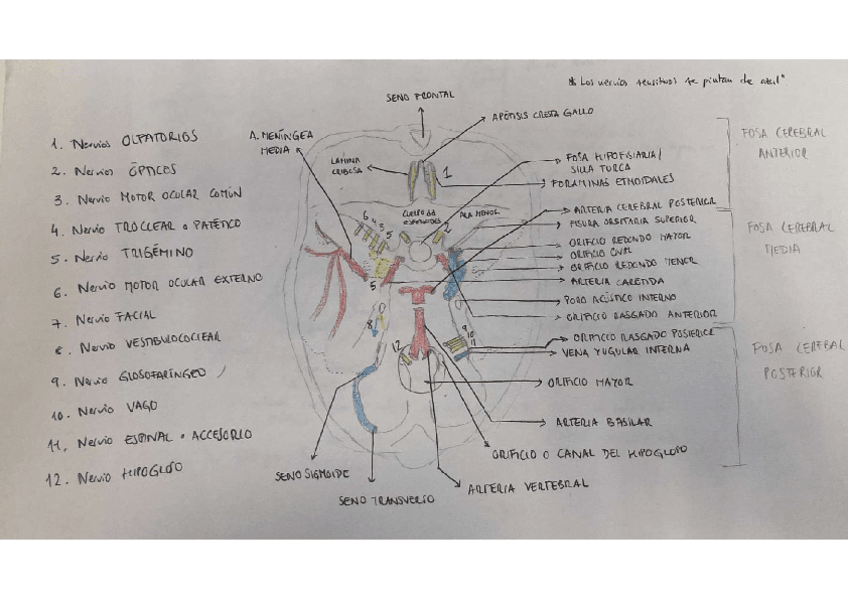 * Los nervios sensitivos se pintan de azul"
1. Nervios OLFATORIOS
2. Nervios ÓPTICOS
3. Nervio MOTOR OCULAR COMÚN
4. Nervio TROCLEAR o PATÉTICO
5. Nervio TRIGÉMINO
6. Nervio MOTOR OCULAR EXTERNO
7. Nervio FACIAL
8. Nervio VESTIBULOCOCLEAR
9. Nervio GLOSOFARÍNGEO
10. Nervio VAGO
11. Nervio ESPINAL o ACCESORIO
12. Nervio HIPOGLOSO
SENO FRONTAL
APÓFISIS CRISTA GALLO
A. MENÍNGEA
MEDIA
LÁMINA
CRIBOSA
1
FOSA HIPOFISIARIA/
SILLA TURCA
FORAMINAS ETMOIDALES
6
4
3
5
CUERPO DEL
ESFENOIDES
2
ALA MENOR
ARTERIA CEREBRAL POSTERIOR
FISURA ORBITARIA SUPERIOR
ORIFICIO REDONDO MAYOR
ORIFICIO OVAL
ORIFICIO REDONDO MENOR
ARTERIA CARÓTIDA
PORO ACÚSTICO INTERNO
ORIFICIO RASGADO ANTERIOR
5
8
12
9
10
11
ORIFICIO RASGADO POSTERIOR
VENA YUGULAR INTERNA
ORIFICIO MAYOR
ARTERIA BASILAR
ORIFICIO O CANAL DEL HIPOGLOSO
ARTERIA VERTEBRAL
SENO SIGMOIDE
SENO TRANSVERSO
FOSA CEREBRAL
ANTERIOR
FOSA CEREBRAL
MEDIA
FOSA CEREBAL
POSTERIOR